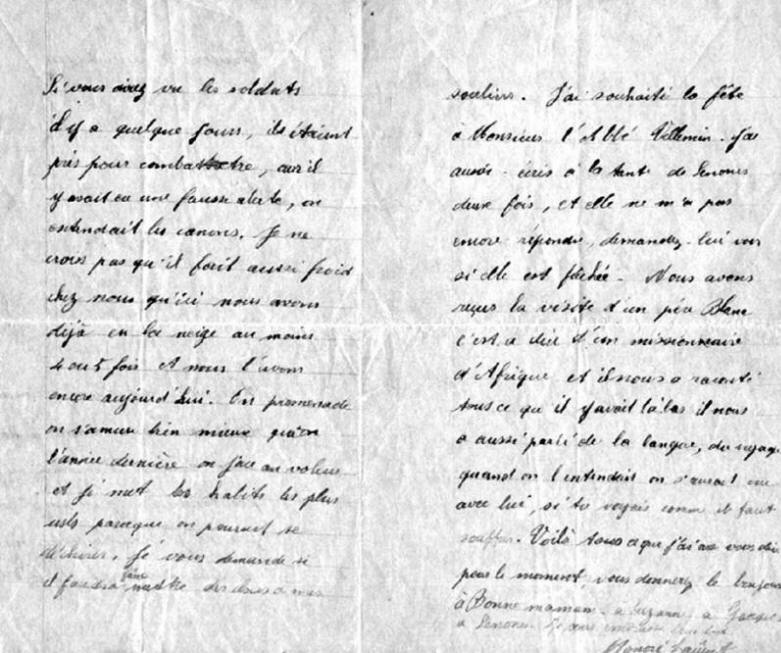 Si vous aviez vu les soldats
il y a quelque jours, ils étaient
près pour combattre, car il
y avait eu une fausse alerte, on
entendait les canons. Je ne
crois pas qu'il fait aussi froid
chez nous qu'ici nous avons
déjà eu la neige au moins
4 ou 5 fois et nous l'avons
encore aujourd'hui. En promenade
on s'amuse bien mieux qu'en
l'année dernière on joue au voleur
et je met les habits les plus
usés parceque on pourrait se
déchirer. Je vous demande si
il faudra faire mettre des clous a mes
souliers. J'ai souhaité la fête
à Monsieur l'Abbé Villemin. j'ai
aussi écris à la tante de Senones
deux fois, et elle ne m'a pas
encore répondu, demandez-lui voir
si elle est fâchée. Nous avons
reçus la visite d'un père Blanc
c'est a dire d'un missionnaire
d'Afrique et il nous a raconté
tous ce qu'il y avait là bas il nous
a aussi parlé de la langue, du voyage
quand on l'entendait on s'aurait
avec lui, si tu voyais comme il faut
souffrir. Voilà tous ce que j'ai a vous dire
pour le moment, vous donnerez le bonjour
à Bonne maman, a Suzanne, a
a Senones. Je vous embrasse
Honoré